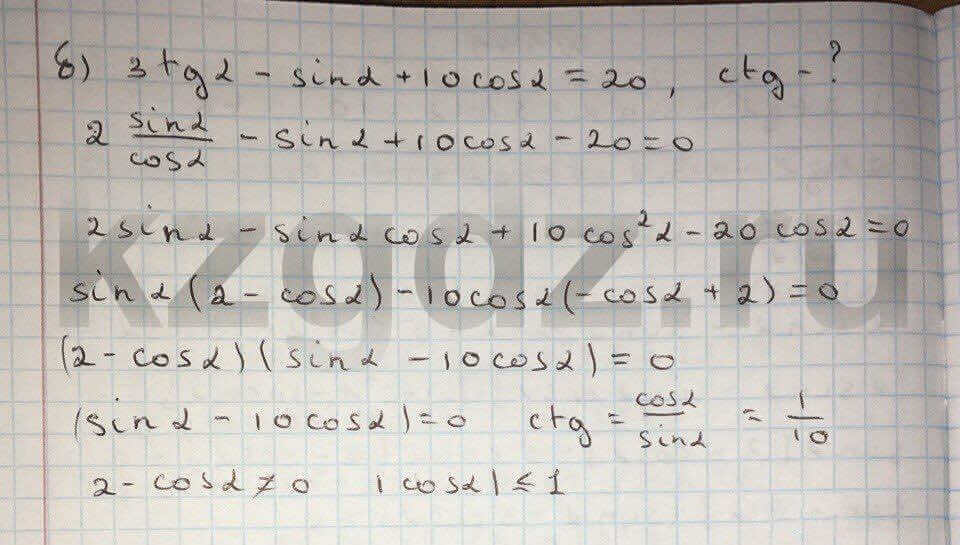 б) 3tgα - sinα + 10cosα = 20, ctg - ?
2 sinα/cosα - sinα + 10cosα - 20 = 0
2sinα - sinα cosα + 10cos²α - 20cosα = 0
kzgdz.ru
sinα(2 - cosα) - 10cosα(-cosα + 2) = 0
(2 - cosα)(sinα - 10cosα) = 0
(sinα - 10cosα) = 0 ctg = cosα/sinα = 1/10
2 - cosα ≠ 0 |cosα| ≤ 1